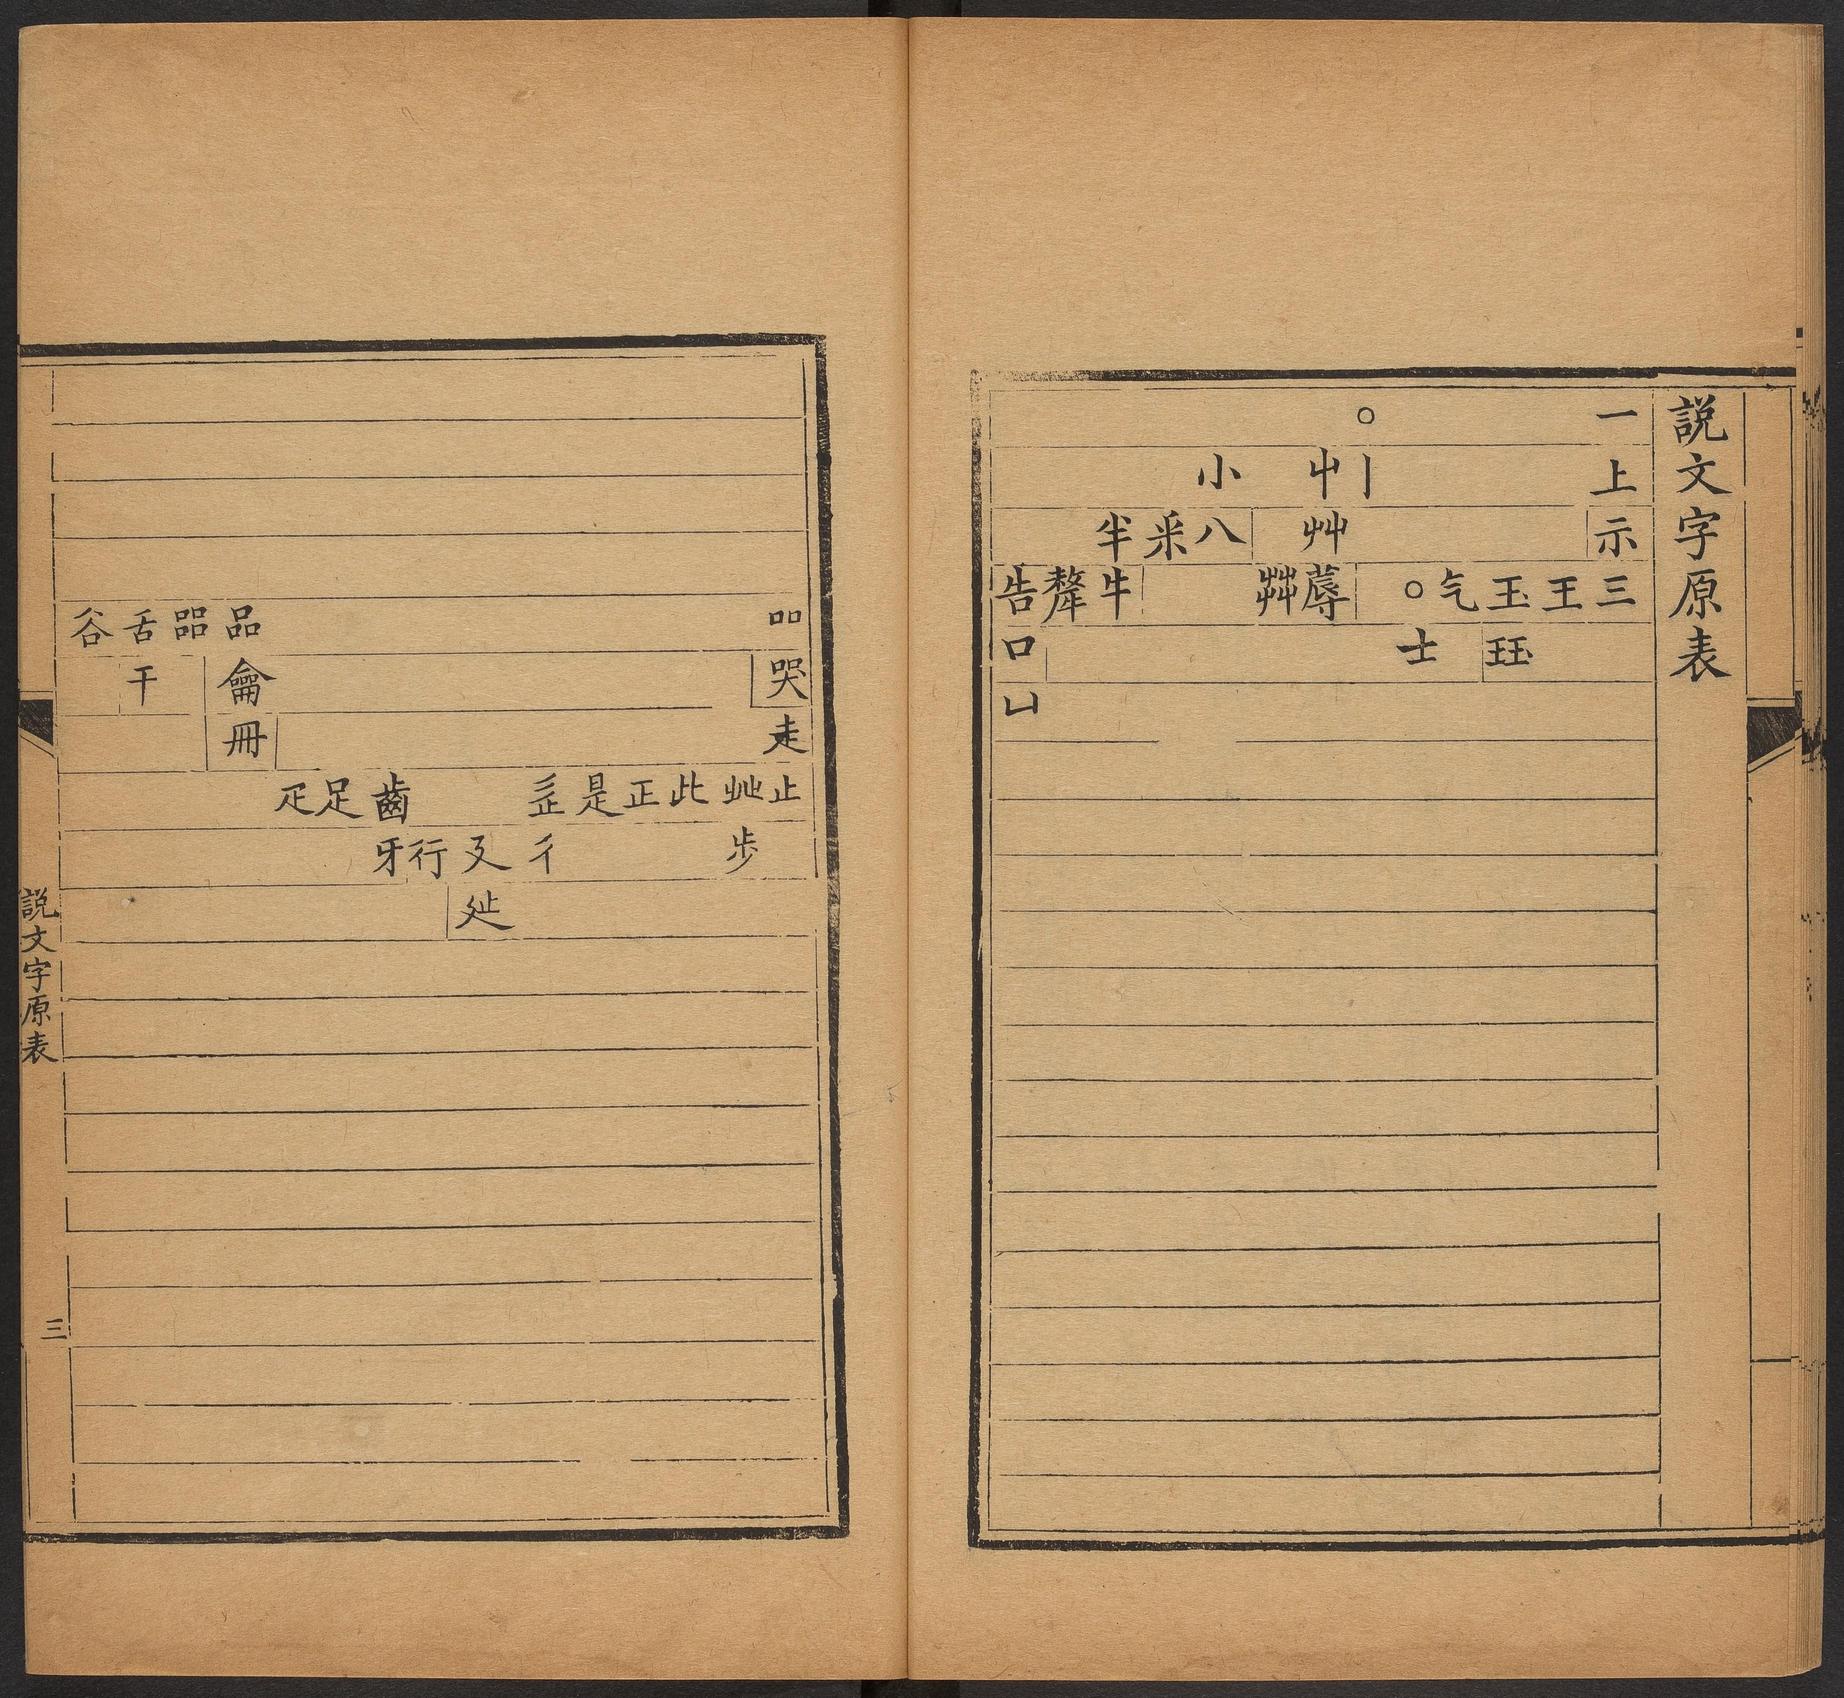 説文字原表
一上示三
王
玉玨
气
○士
○丨
屮艸蓐
茻
小八
釆
半牛
犛
告口凵
吅哭走止
癶步
此
正
是
辵彳
廴㢟
行
齒牙
足
疋
品龠冊
㗊
舌干
谷
説文字原表
三